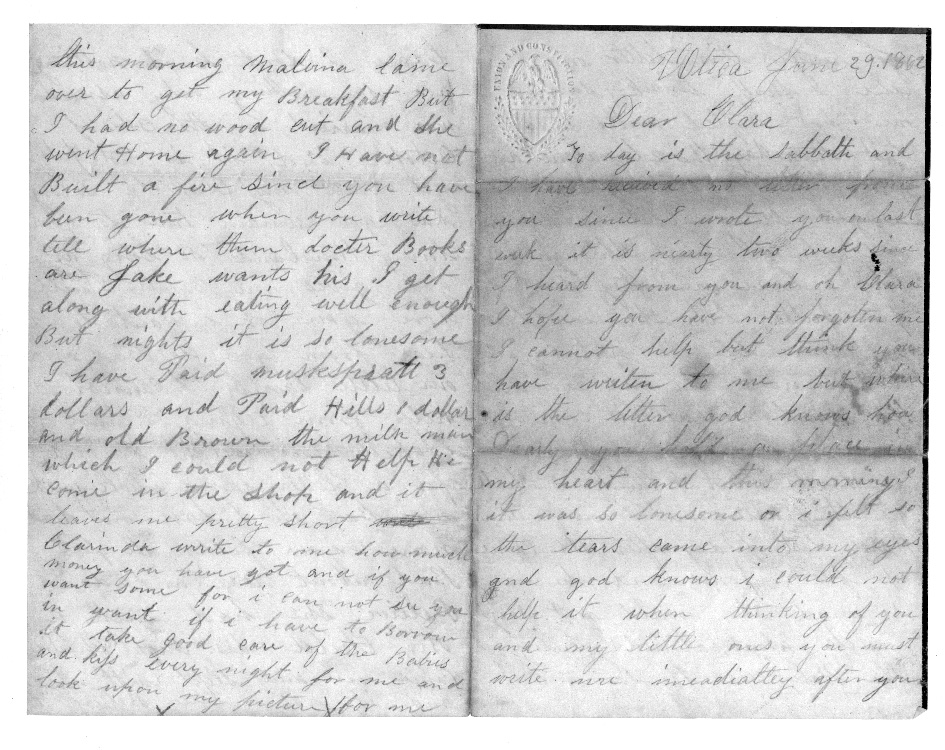 UNION AND CONSTITUTION
Utica June 29. 1862
Dear Clara
To day is the Sabbath and
I have recived no letter from
you since I wrote you on last
week it is nearly two weeks since
I heard from you and oh Clara
I hope you have not forgoten me
I cannot help but think you
have writen to me but where
is the letter god knows how
Dearly you hold a place in
my heart and this morning I
it was so lonesome or i felt so
the tears came into my eyes
and god knows i could not
help it when thinking of you
and my little ones you must
write me imeadialtey after you
this morning Malvina Came
over to get my Breakfast But
I had no wood cut and she
went Home again I Have not
Built a fire Since you have
been gone when you write
tell where them docter Books
are Jake wants his I get
along with eating well enough
But nights it is so lonesome
I have Paid muskspratt 3
dollars and Paid Hills 1 dollar
and old Brown the milk man
which I could not Help He
come in the Shop and it
leaves me pretty short
Clarinda write to me how much
money you have got and if you
want some for i can not see you
in want if i have to Borrow
it take good care of the Babies
and kiss every night for me and
look upon my picture for me